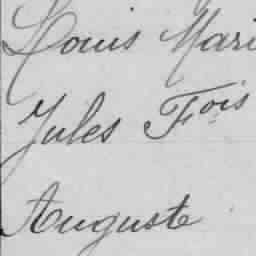 Louis Mari
Jules Fois
Auguste